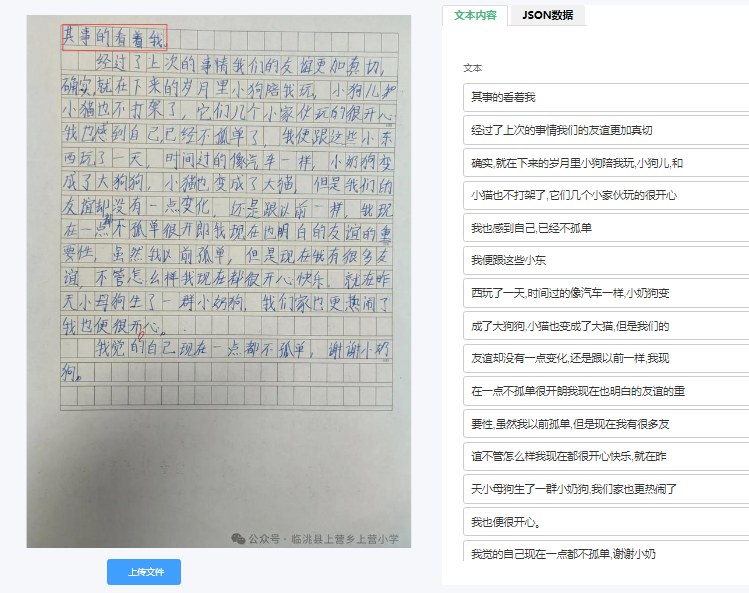 其事的看着我
经过了上次的事情我们的友谊更加真切,
确实,就在下来的岁月里小狗陪我玩,小狗儿和
小猫也不打架了,它们几个小家伙玩的很开心
我也感到自己,已经不孤单了,我便跟这些小东
西玩了一天,时间过的像汽车一样,小奶狗变
成了大狗狗,小猫也变成了大猫,但是我们的
友谊却没有一点变化,还是跟以前一样,我现
在一点都不孤单很开郎我现在也明白的友谊的重
要性,虽然我以前孤单,但是现在我有很多友
谊,不管怎么样我现在都很开心快乐,就在昨
天小母狗生了一群小奶狗,我们家也更热闹了
我也便很开心。
我觉的自己现在一点都不孤单,谢谢小奶
狗。
公众号·临洮县上营乡上营小学
上传文件
文本内容
JSON数据
文本
其事的看着我
经过了上次的事情我们的友谊更加真切
确实,就在下来的岁月里小狗陪我玩,小狗儿,和
小猫也不打架了,它们几个小家伙玩的很开心
我也感到自己,已经不孤单
我便跟这些小东
西玩了一天,时间过的像汽车一样,小奶狗变
成了大狗狗,小猫也变成了大猫,但是我们的
友谊却没有一点变化,还是跟以前一样,我现
在一点不孤单很开朗我现在也明白的友谊的重
要性,虽然我以前孤单,但是现在我有很多友
谊不管怎么样我现在都很开心快乐,就在昨
天小母狗生了一群小奶狗,我们家也更热闹了
我也便很开心。
我觉的自己现在一点都不孤单,谢谢小奶